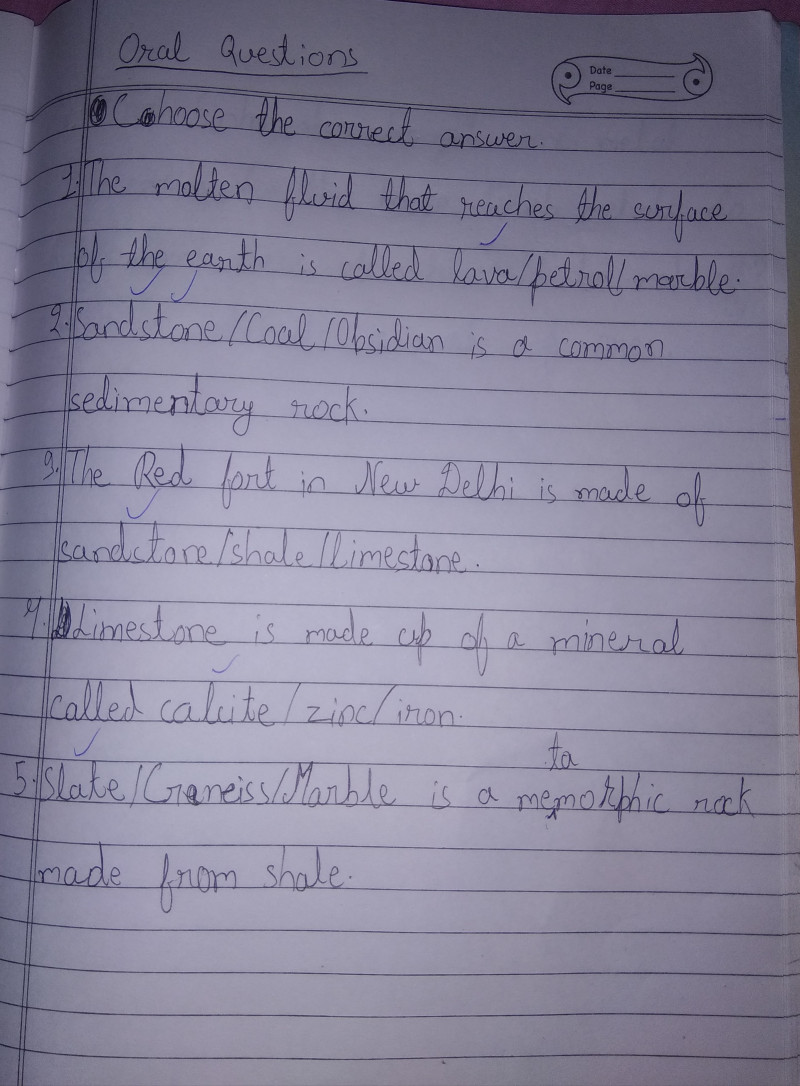 Oral Questions
Date
Page
Choose the correct answer.
1. The molten fluid that reaches the surface
of the earth is called lava/petrol/marble.
2. Sandstone/Coal/Obsidian is a common
sedimentary rock.
3. The Red fort in New Delhi is made of
sandstone/shale/limestone.
4. Limestone is made up of a mineral
called calcite/zinc/iron.
ta
5. Slate/Graneiss/Marble is a memorphic rock
made from shale.